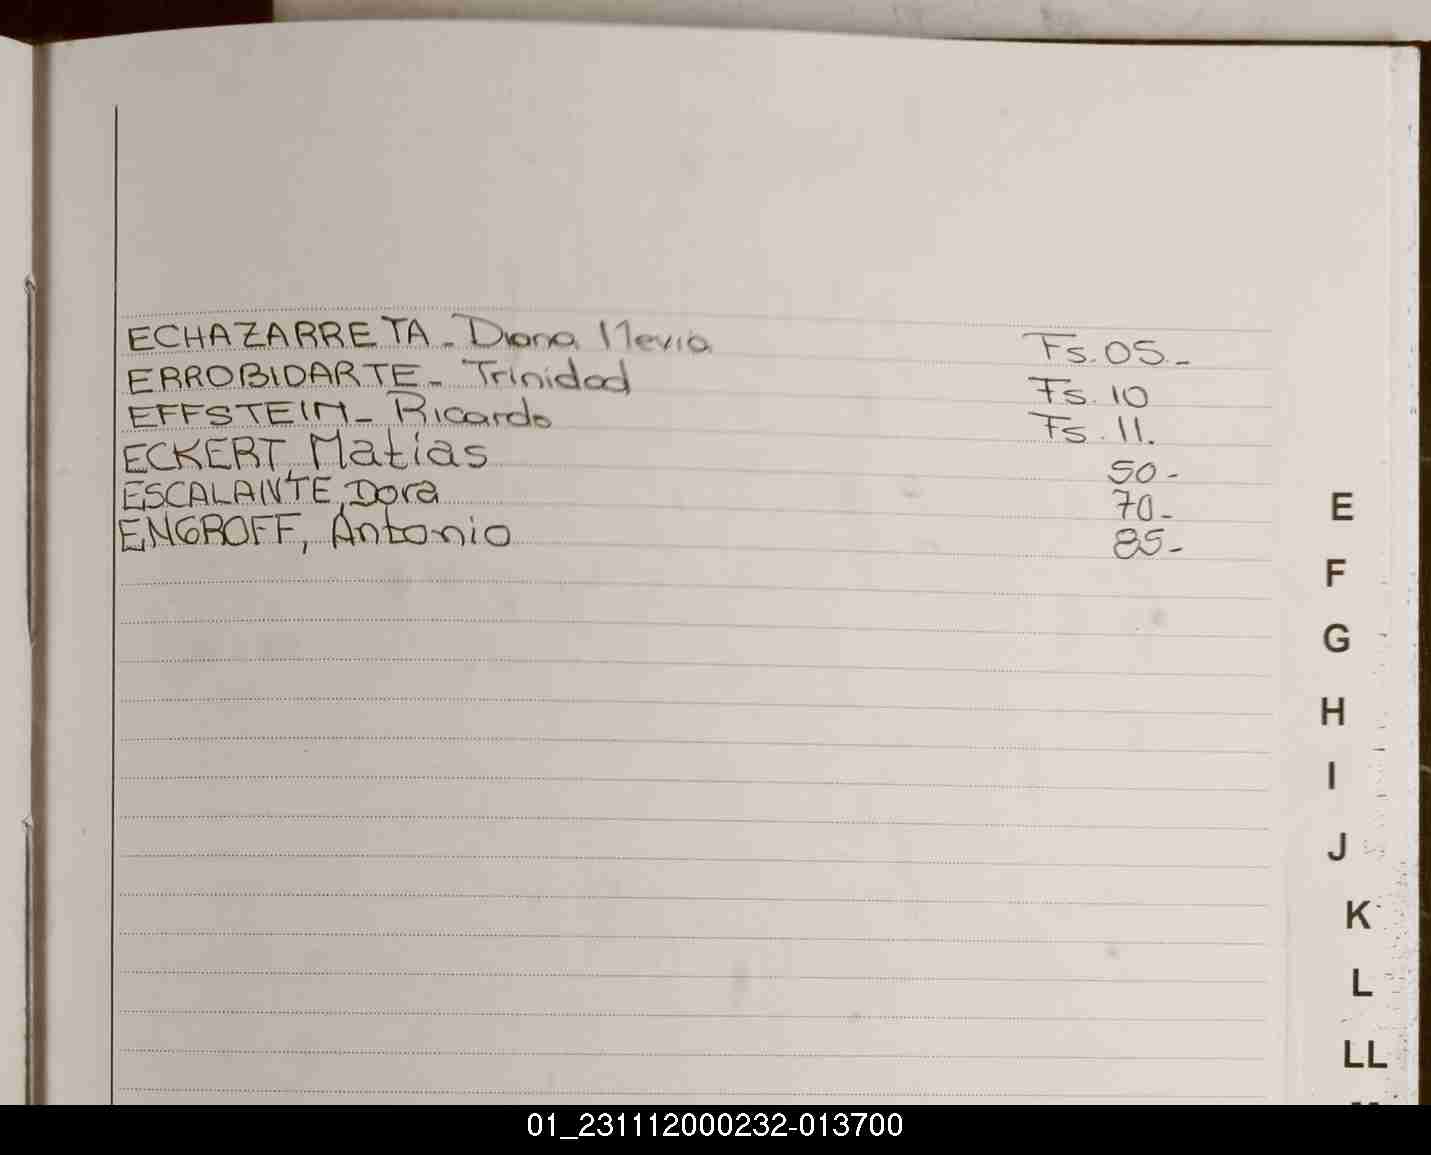 ECHAZARRETA - Diana Mevia Fs. 05.-
ERROBIDARTE - Trinidad Fs. 10
EFFSTEIN - Ricardo Fs. 11.
ECKERT, Matías 50-
ESCALANTE, Dora 70-
ENGROFF, Antonio 85-
E
F
G
H
I
J
K
L
LL
01_231112000232-013700